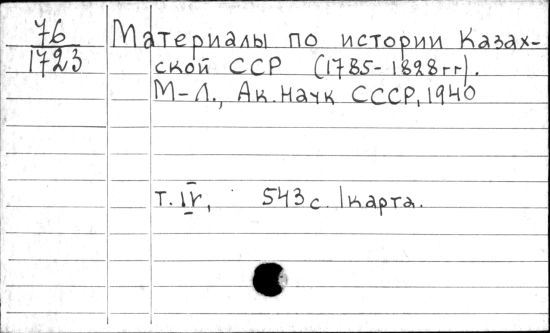 76
1723
Материалы по истории Казах-
ской ССР (1785-1828 гг).
М-Л., Ак. Наук СССР, 1940
т. IV, 543 с. 1 карта.